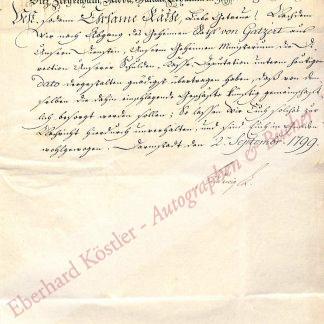 Vest, sodann Ehrsame Räthe, Liebe Getreue! Nachdem
Wir nach Abgang des Geheimen Raths von Gatzert aus
Unsern Diensten, Unserm Geheimen Ministerium die Di-
rection Unserer Schulden unterm heutigen
dato dergestalten gnädigst übertragen haben, daß von dem-
selben die dahin einschlagende Geschäfte künftig gemeinschaft-
lich besorgt werden sollen; So lassen Wir Euch solches zur
Nachricht hierdurch unverhalten, und sind Euch in Gnaden
wohlgewogen. Darmstadt den 2. September 1799.
Ludwig L.
Eberhard Köstler - Autographen & Bücher